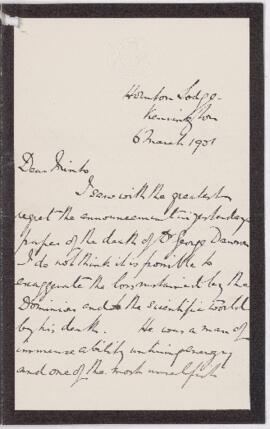 Hornton Lodge
Kensington
6 March 1901
Dear Minto
I saw with the greatest
regret the announcement in yesterday's
paper of the death of Dr George Dawson
I do not think it is possible to
exaggerate the loss sustained by the
Dominion and to the scientific world
by his death. He was a man of
immense ability untiring energy
and one of the most unselfish